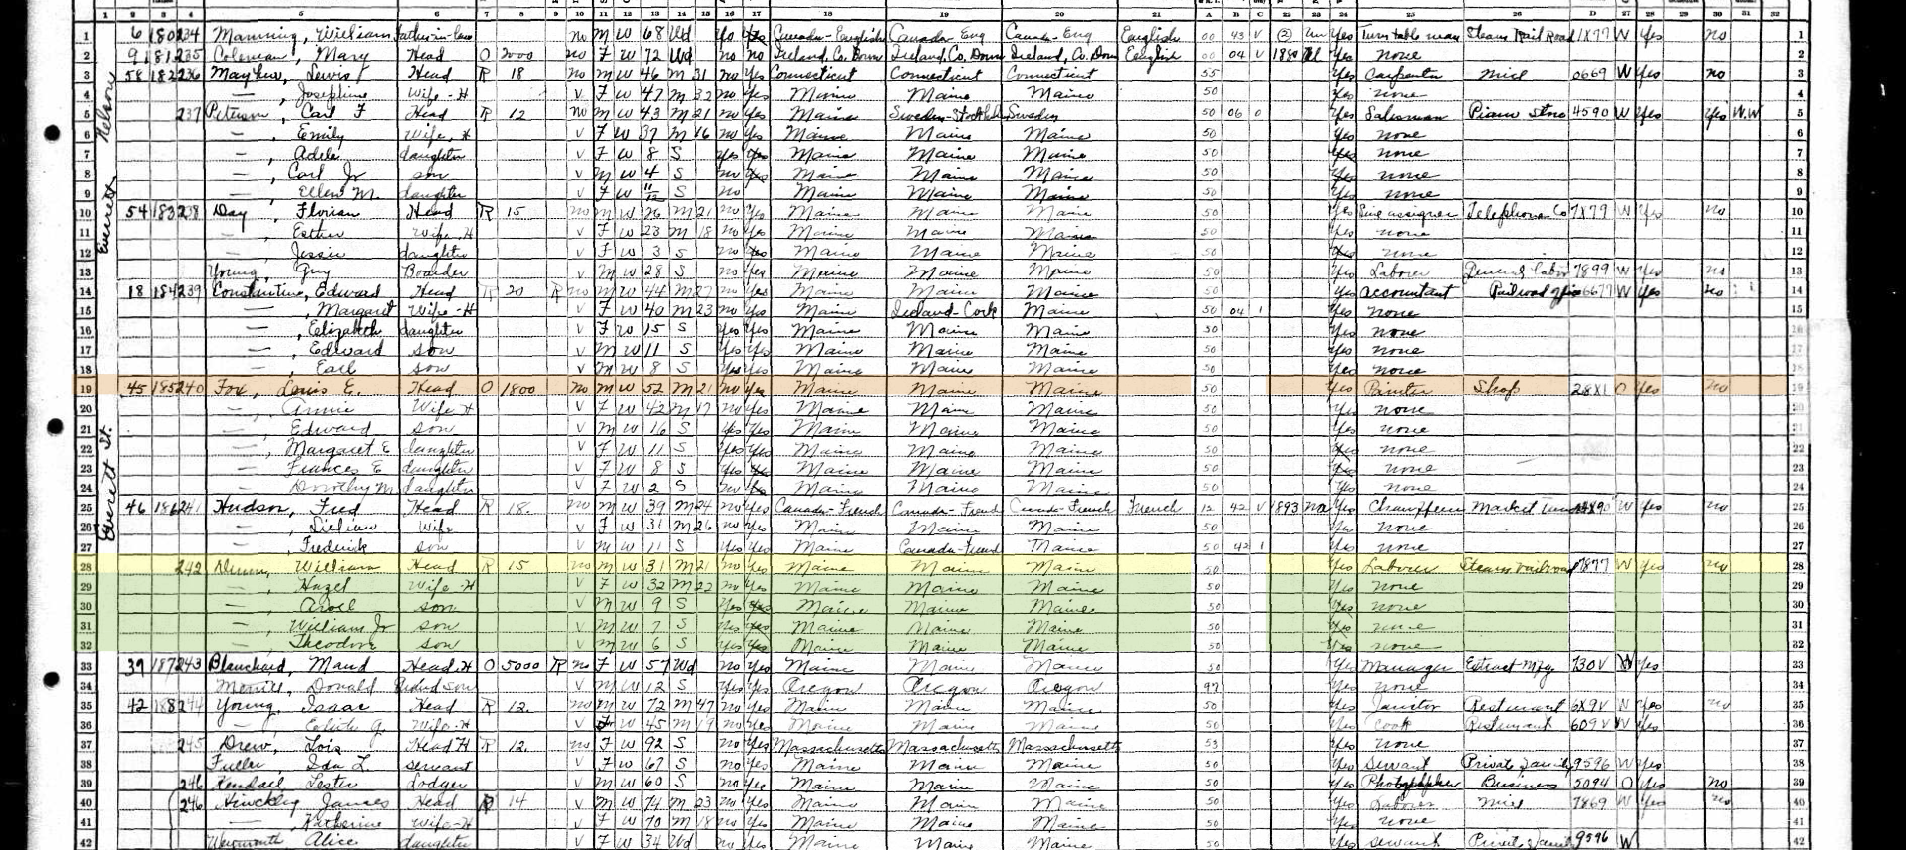 1 2 3 4 5 6 7 8 9 10 11 12 13 14 15 16 17 18 19 20 21 A B C 22 23 24 25 26 D 27 28 29 30 31 32
1 6 180 234 Manning, William Father-in-law no M W 68 Wd no yes Canada-English Canada-Eng Canada-Eng English 00 43 V Yes Turntable man Steam Rail Road W Yes no 1
2 9 181 235 Coleman, Mary Head O 2000 no F W 72 Wd no no Ireland, Co. Down Ireland, Co. Down Ireland, Co. Down English 00 04 V 1880 Al Yes none 2
3 58 182 236 Mayhew, Lewis Head R 18 no M W 46 M 31 no Yes Connecticut Connecticut Connecticut 55 Yes Carpenter Mill 0669 W Yes no 3
4 — , Josephine Wife-H V F W 47 M 32 no Yes Maine Maine Maine 50 Yes none 4
5 237 Peterson, Carl F Head R 12 no M W 43 M 21 no Yes Maine Sweden-Stockholm Sweden 50 06 0 Yes Salesman Piano Store 4590 W Yes Yes W.W 5
6 — , Emily Wife-H V F W 37 M 16 no Yes Maine Maine Maine 50 Yes none 6
7 — , Adele daughter V F W 8 S Yes Yes Maine Maine Maine 50 Yes none 7
8 — , Carl Jr son V M W 4 S no Maine Maine Maine 50 Yes none 8
9 — , Ellen M. daughter V F W 11/12 S no Maine Maine Maine 50 none 9
10 54 183 238 Day, Florian Head R 15 no M W 26 M 21 no Yes Maine Maine Maine 50 Yes Line assigner Telephone Co 7X79 W Yes no 10
11 — , Esther Wife-H V F W 23 M 18 no Yes Maine Maine Maine 50 Yes none 11
12 — , Jessie daughter V F W 3 S no Maine Maine Maine 50 none 12
13 Young, Guy Boarder V M W 28 S no Yes Maine Maine Maine 50 Yes Laborer General Labor 7899 W Yes no 13
14 18 184 239 Constantine, Edward Head R 20 R no M W 44 M 27 no Yes Maine Maine Maine 50 Yes accountant Railroad office W Yes no 14
15 — , Margaret Wife-H V F W 40 M 23 no Yes Maine Ireland-Cork Maine 50 04 1 Yes none 15
16 — , Elizabeth daughter V F W 15 S Yes Yes Maine Maine Maine 50 Yes none 16
17 — , Edward son V M W 11 S Yes Yes Maine Maine Maine 50 Yes none 17
18 — , Earl son V M W 8 S Yes Yes Maine Maine Maine 50 Yes none 18
19 45 185 240 Fox, Lewis E. Head O 1800 no M W 52 M 21 no Yes Maine Maine Maine 50 Yes Painter Shop 28X1 O Yes no 19
20 — , Annie Wife H V F W 42 M 17 no Yes Maine Maine Maine 50 Yes none 20
21 — , Edward son V M W 16 S Yes Yes Maine Maine Maine 50 Yes none 21
22 — , Margaret E daughter V F W 11 S Yes Yes Maine Maine Maine 50 Yes none 22
23 — Frances E daughter V F W 8 S Yes Yes Maine Maine Maine 50 Yes none 23
24 — Dorothy M daughter V F W 2 S no Maine Maine Maine 50 Yes none 24
25 46 186 241 Hudson, Fred Head R 18. no M W 39 M 24 no Yes Canada-French Canada-French Canada-French French 12 42 V 1893 na Yes Chauffeur Market W Yes no 25
26 — , Lillian Wife V F W 31 M 26 no Yes Maine Maine Maine 50 Yes none 26
27 — , Frederick son V M W 11 S Yes Yes Maine Canada-French Maine 50 42 1 Yes none 27
28 242 Dunn, William Head R 15 no M W 31 M 21 no Yes Maine Maine Maine 50 Yes Laborer Steam railroad 7877 W Yes no 28
29 — , Hazel Wife-H V F W 32 M 22 no Yes Maine Maine Maine 50 Yes none 29
30 — , son V M W 9 S Yes Yes Maine Maine Maine 50 Yes none 30
31 — , William Jr son V M W 7 S Maine Maine Maine 50 none 31
32 — , Theodore son V M W 6 S Yes Maine Maine Maine 50 none 32
33 39 187 243 Blanchard, Maud Head H O 5000 R no F W 57 Wd no Yes Maine Maine Maine 50 Yes Manager Extract Mfg 730V W Yes 33
34 Donald Grandson V M W 12 S Yes Yes Oregon Oregon Oregon 97 Yes none 34
35 42 188 244 Young, Isaac Head R 12. no M W 72 M 47 no Yes Maine Maine Maine 50 Yes Janitor Restaurant 6X9V W Yes no 35
36 — , Edith G. Wife-H V F W 45 M 19 no Yes Maine Maine Maine 50 Yes Cook Restaurant 609V W Yes 36
37 245 Drew, Lois Head H R 12. no F W 92 S no Yes Massachusetts Massachusetts Massachusetts 53 Yes none 37
38 Fuller, Ida L. servant V F W 67 S no Yes Maine Maine Maine 50 Yes servant Private family 9596 W Yes 38
39 246 Kendall Lester Lodger V M W 60 S no Yes Maine Maine Maine 50 Yes Photographer Business 5094 O Yes no 39
40 246 Hinckley James Head R 14 V M W 74 M 23 no Yes Maine Maine Maine 50 Yes Laborer Mill 7869 W Yes no 40
41 — , Katherine Wife-H V F W 70 M 18 no Yes Maine Maine Maine 50 Yes none 41
42 Alice daughter V F W 34 Wd no Yes Maine Maine Maine 50 Yes servant Private family 9596 W 42
Everett
Nelson
Everett St.